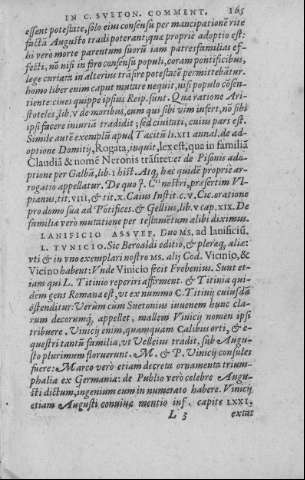 IN C. SVETON. COMMENT. 165
essent potestate, solo eius consensu per mancipationē rite
factā Augusto tradi poterant: quæ propriè adoptio est:
hi verò morte parentum suorū iam patresfamiliâs ef-
fectı, nō nisi in foro consensu populi, coram pontificibus,
lege curiata in alterius trāsire potestatē permittebātur.
homo liber enim caput mutare nequit, nisi populo cōsen-
tiente: ciues quippe ipsius Reip. sunt. Qua ratione Ari-
stoteles, lib. v. de moribus, eum qui sibi vim infert, nō sibi
ipsi facere iniuriā tradidit; sed ciuitati, cuius pars est.
Simile autē exemplū apud Tacitū li. XII annal. de ad-
optione Domitij, Rogata, inquit, lex est, qua in familiā
Claudiā & nomē Neronis trāsiret: ac de Pisonis ado-
ptione per Galbā, lib. I. hist. Atq; hæc quidē proprie ar-
rogatio appellatur. De quo I. C.ti nostri, præsertim Vl-
pianus, tit. VIII, & tit. X. Caius Instit. c. V. Cic. oratione
pro domo sua ad Pōtifices. & Gellius, lib. V. cap. XIX. De
familiæ verò mutatione per testamētum alibi diximus.
LANIFICIO ASSVEF. Duo MS, ad lanificiū.
L. TVNICIO. Sic Beroaldi editio, & pleræq; aliæ:
vti & in vno exemplari nostro MS. alij Cod. Vicinio, &
Vicino habent: Vnde Vinicio fecit Frobenius. Sunt et-
iam qui L. Titinio reperiri affirment. & Titinia qui-
dem gens Romana est, vt ex nummo C. Titinij cuiusdā
ostenditur: Verùm cùm Suetonius iuuenem hunc cla-
rum decorumq́; appellet, mallem Vinicij nomen ipsi
tribuere. Vinicij enim, quamquam Calibus orti, & e-
questri tantū familia, vt Velleius tradit, sub Augu-
sto plurimum floruerunt. M. & P. Vinicij consules
fuere: Marco verò etiam decreta ornamenta trium-
phalia ex Germania: de Publio verò celebre Augu-
sti dictum, ingenium eum in numerato habere. Vinicij
etiam Augusti conuiuæ mentio inf. capite LXXI,
L 3 extat